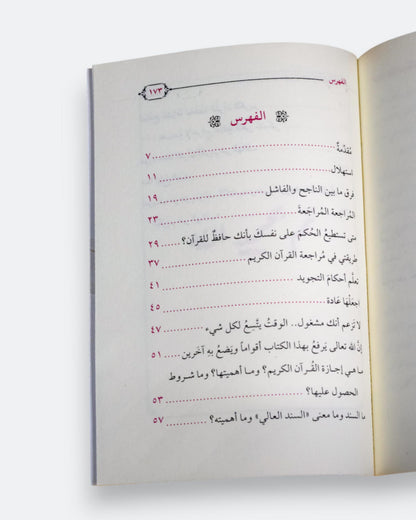 الفهرس
١٧٣
الفهرس
مُقدّمةٌ ٧
استهلال ١١
فرق ما بين الناجح والفاشل ١٩
المُراجعة المُراجَعةَ ٢٣
متى تستطيعُ الحُكمَ على نفسكَ بأنك حافظٌ للقرآن؟ ٢٩
طريقتي في مُراجعة القرآن الكريم ٣٧
تعلّم أحكامَ التجويد ٤١
اجعَلْها عَادة ٤٥
لا تزعم أنك مشغول.. الوقتُ يتَّسِعُ لكل شيء ٤٧
إنَّ الله تعالى يَرفعُ بهذا الكتاب أقواماً ويَضعُ بهِ آخَرين ٥١
ما هي إجازة القُرآن الكريم؟ وما أهميتها؟ وما شروط
الحصول عليها؟ ٥٣
ما السند وما معنى «السند العالي» وما أهميته؟ ٥٧